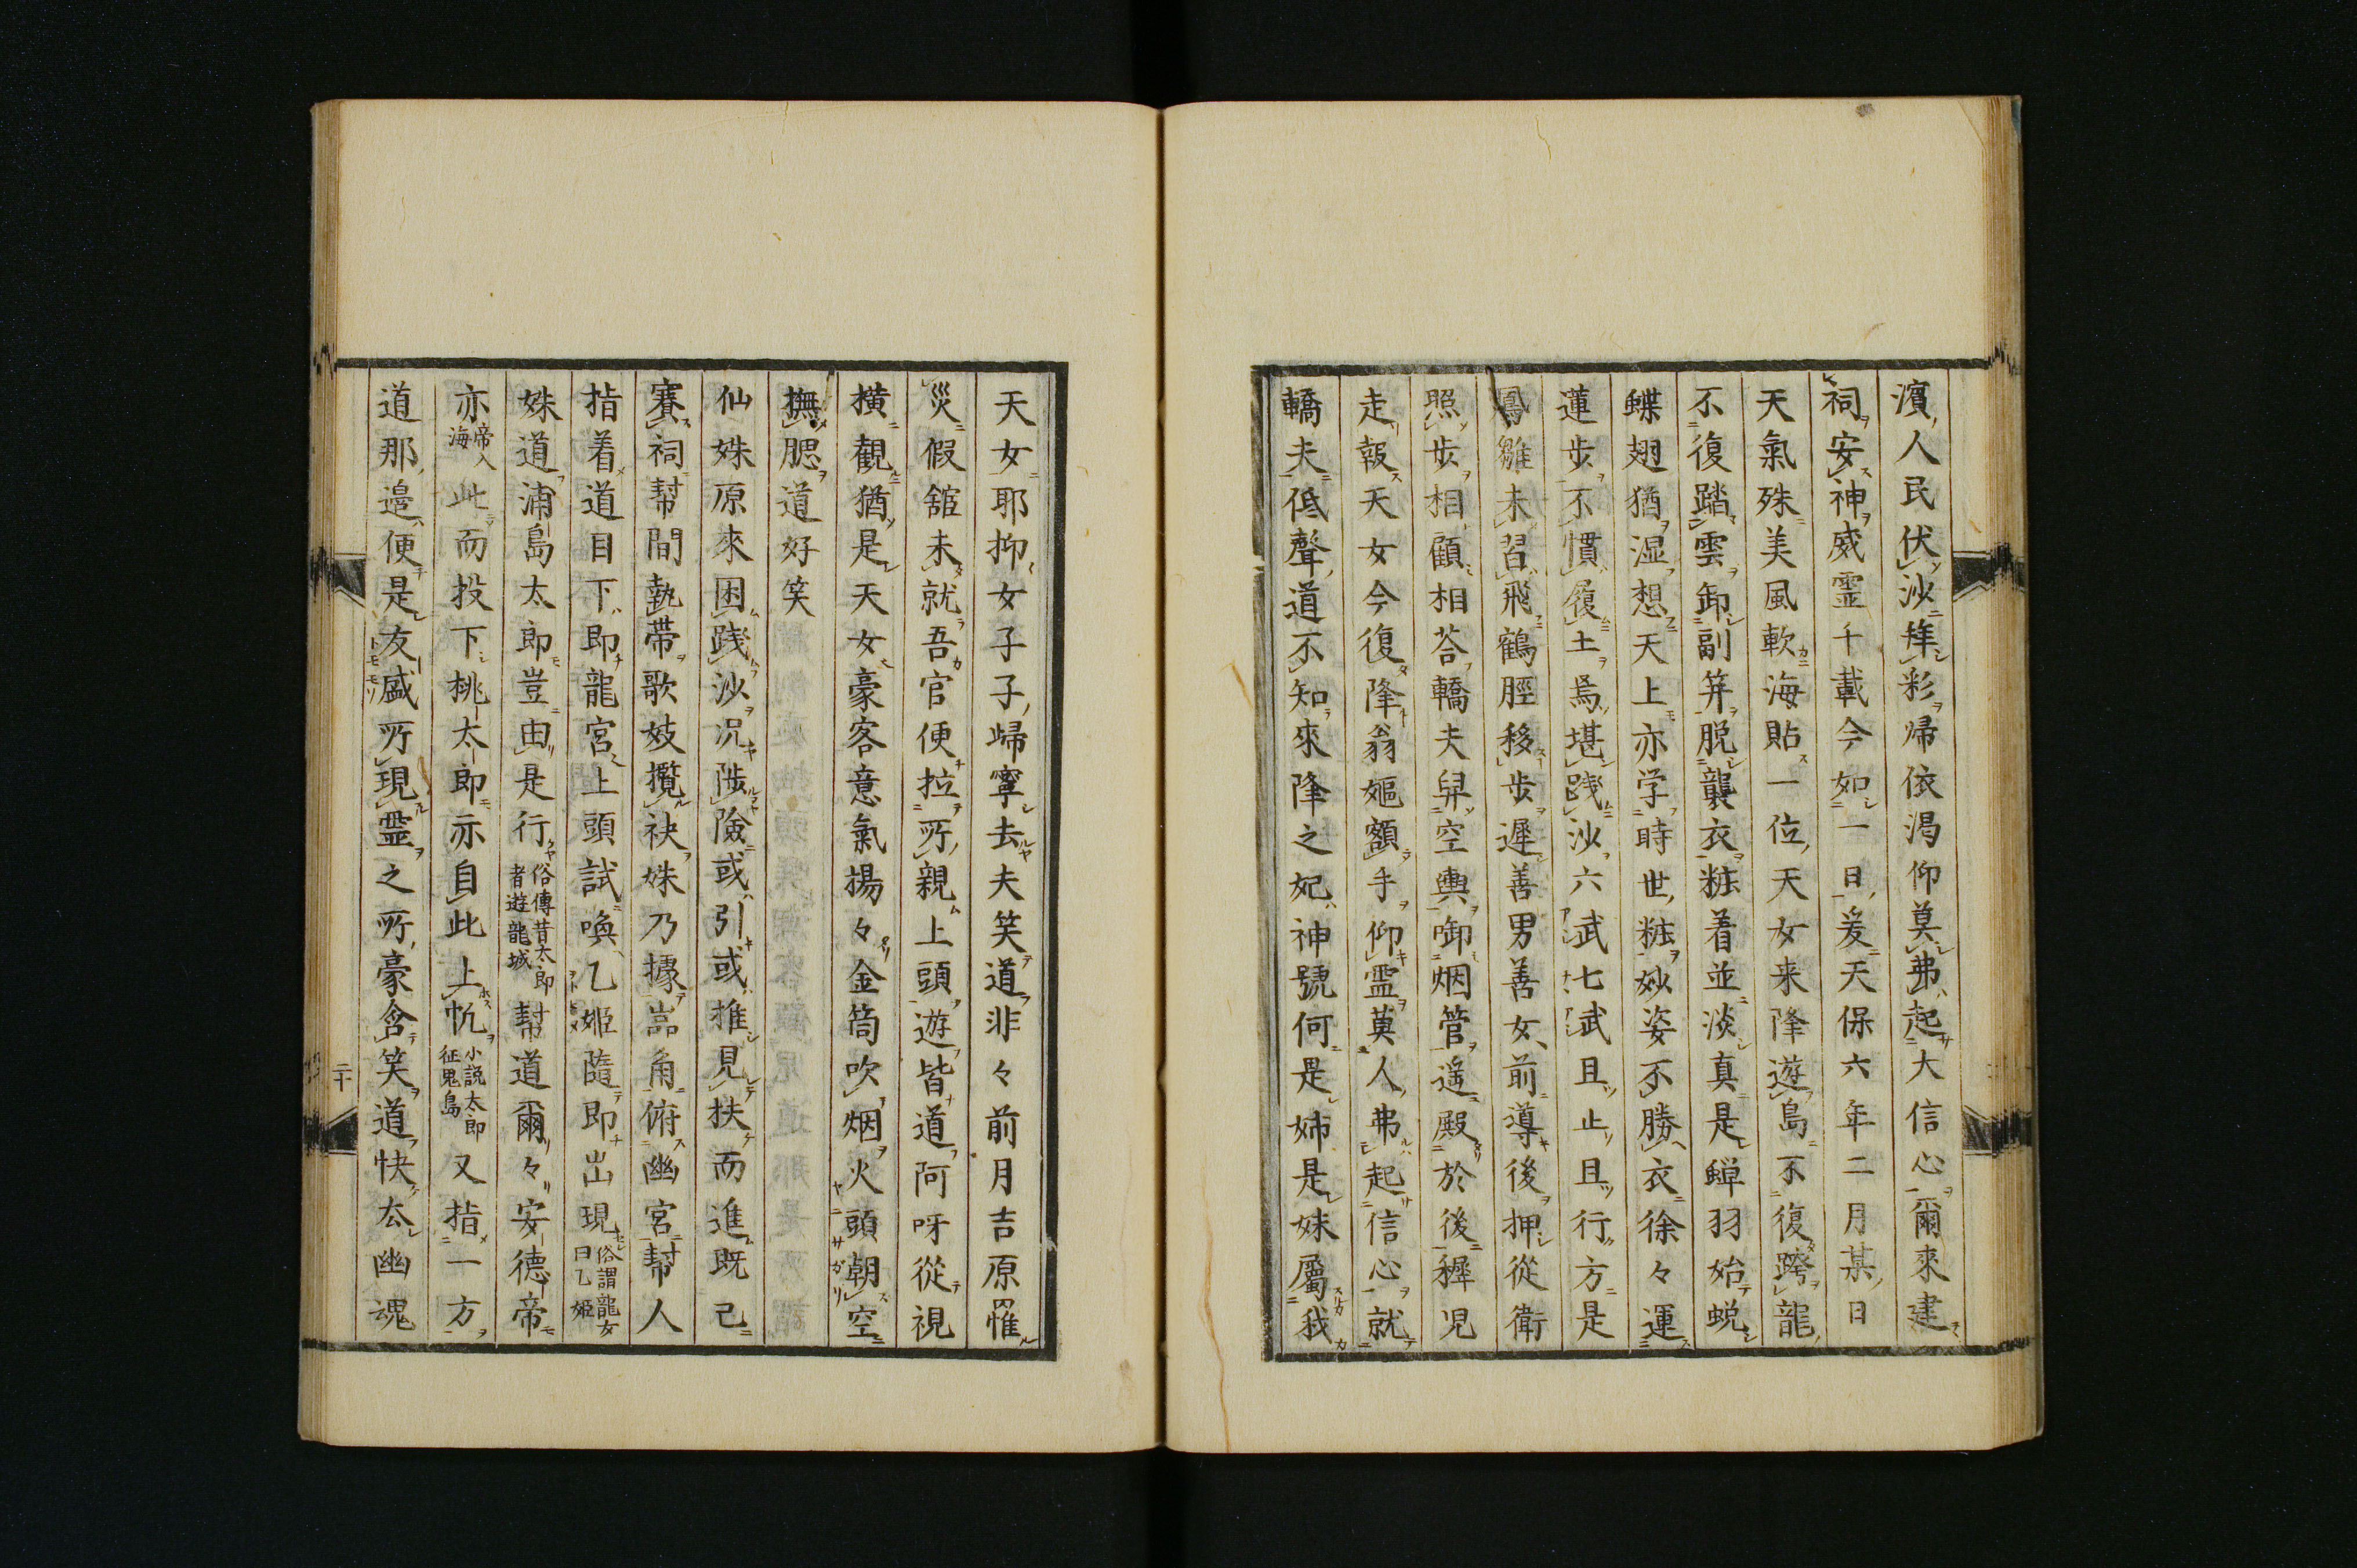 濱人民伏沙拜彩歸依渴仰莫弗起大信心爾來建
祠安神威霊千載今如一日爰天保六年二月某日
天氣殊美風軟海貼一位天女来降遊島不復跨龍
不復踏雲卸副笄脱襲衣粧着並淡真是蟬羽始蛻
蝶翅猶湿想天上亦学時世粧妙姿不勝衣徐々運
蓮步不慣履土焉堪踐沙六武七武且止且行方是
鳳雛未習飛鶴脛移步遲善男善女前導後押從衛
照步相顧相荅轎夫舁空輿啣烟管遥殿於後穉児
走報天女今復降翁嫗額手仰霊莫人弗起信心就
轎夫低聲道不知來降之妃神號何是姉是妹屬我
天女耶抑女子子歸寧去夫笑道非々前月吉原罹
災假舘未就吾官便拉所親上頭遊皆道阿呀從視
横觀猶是天女豪客意氣揚々金筒吹烟火頭朝空
撫腮道好笑
仙姝原來困踐沙况陟險或引或推見扶而進既已
賽祠幇間執帯歌妓攬袂姝乃據嵓角俯幽宮幇人
指着道目下即龍宮上頭試喚乙姫隨即出現俗謂龍女曰乙姫
姝道浦島太郎豈由是行俗傳昔太郎者遊龍城幇道爾々安德帝
亦帝入海此而投下桃太郎亦自此上帆小説太郎征鬼島又指一方
道那邉便是友盛所現霊之所豪含笑道快太幽魂
二十